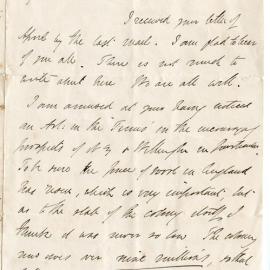 I received your letter of
April by the last mail. I am glad to hear
of you all. There is not much to
write about here We are all well.
I am amused at your having noticed
an Art: in the Times on the encouraging
prospects of N Z & Wellington in particular.
To be sure the price of wool in England
has risen, which is very important but
as to the state of the colony itself, I
think it was never so low. The colony
now owes over nine millions, so that